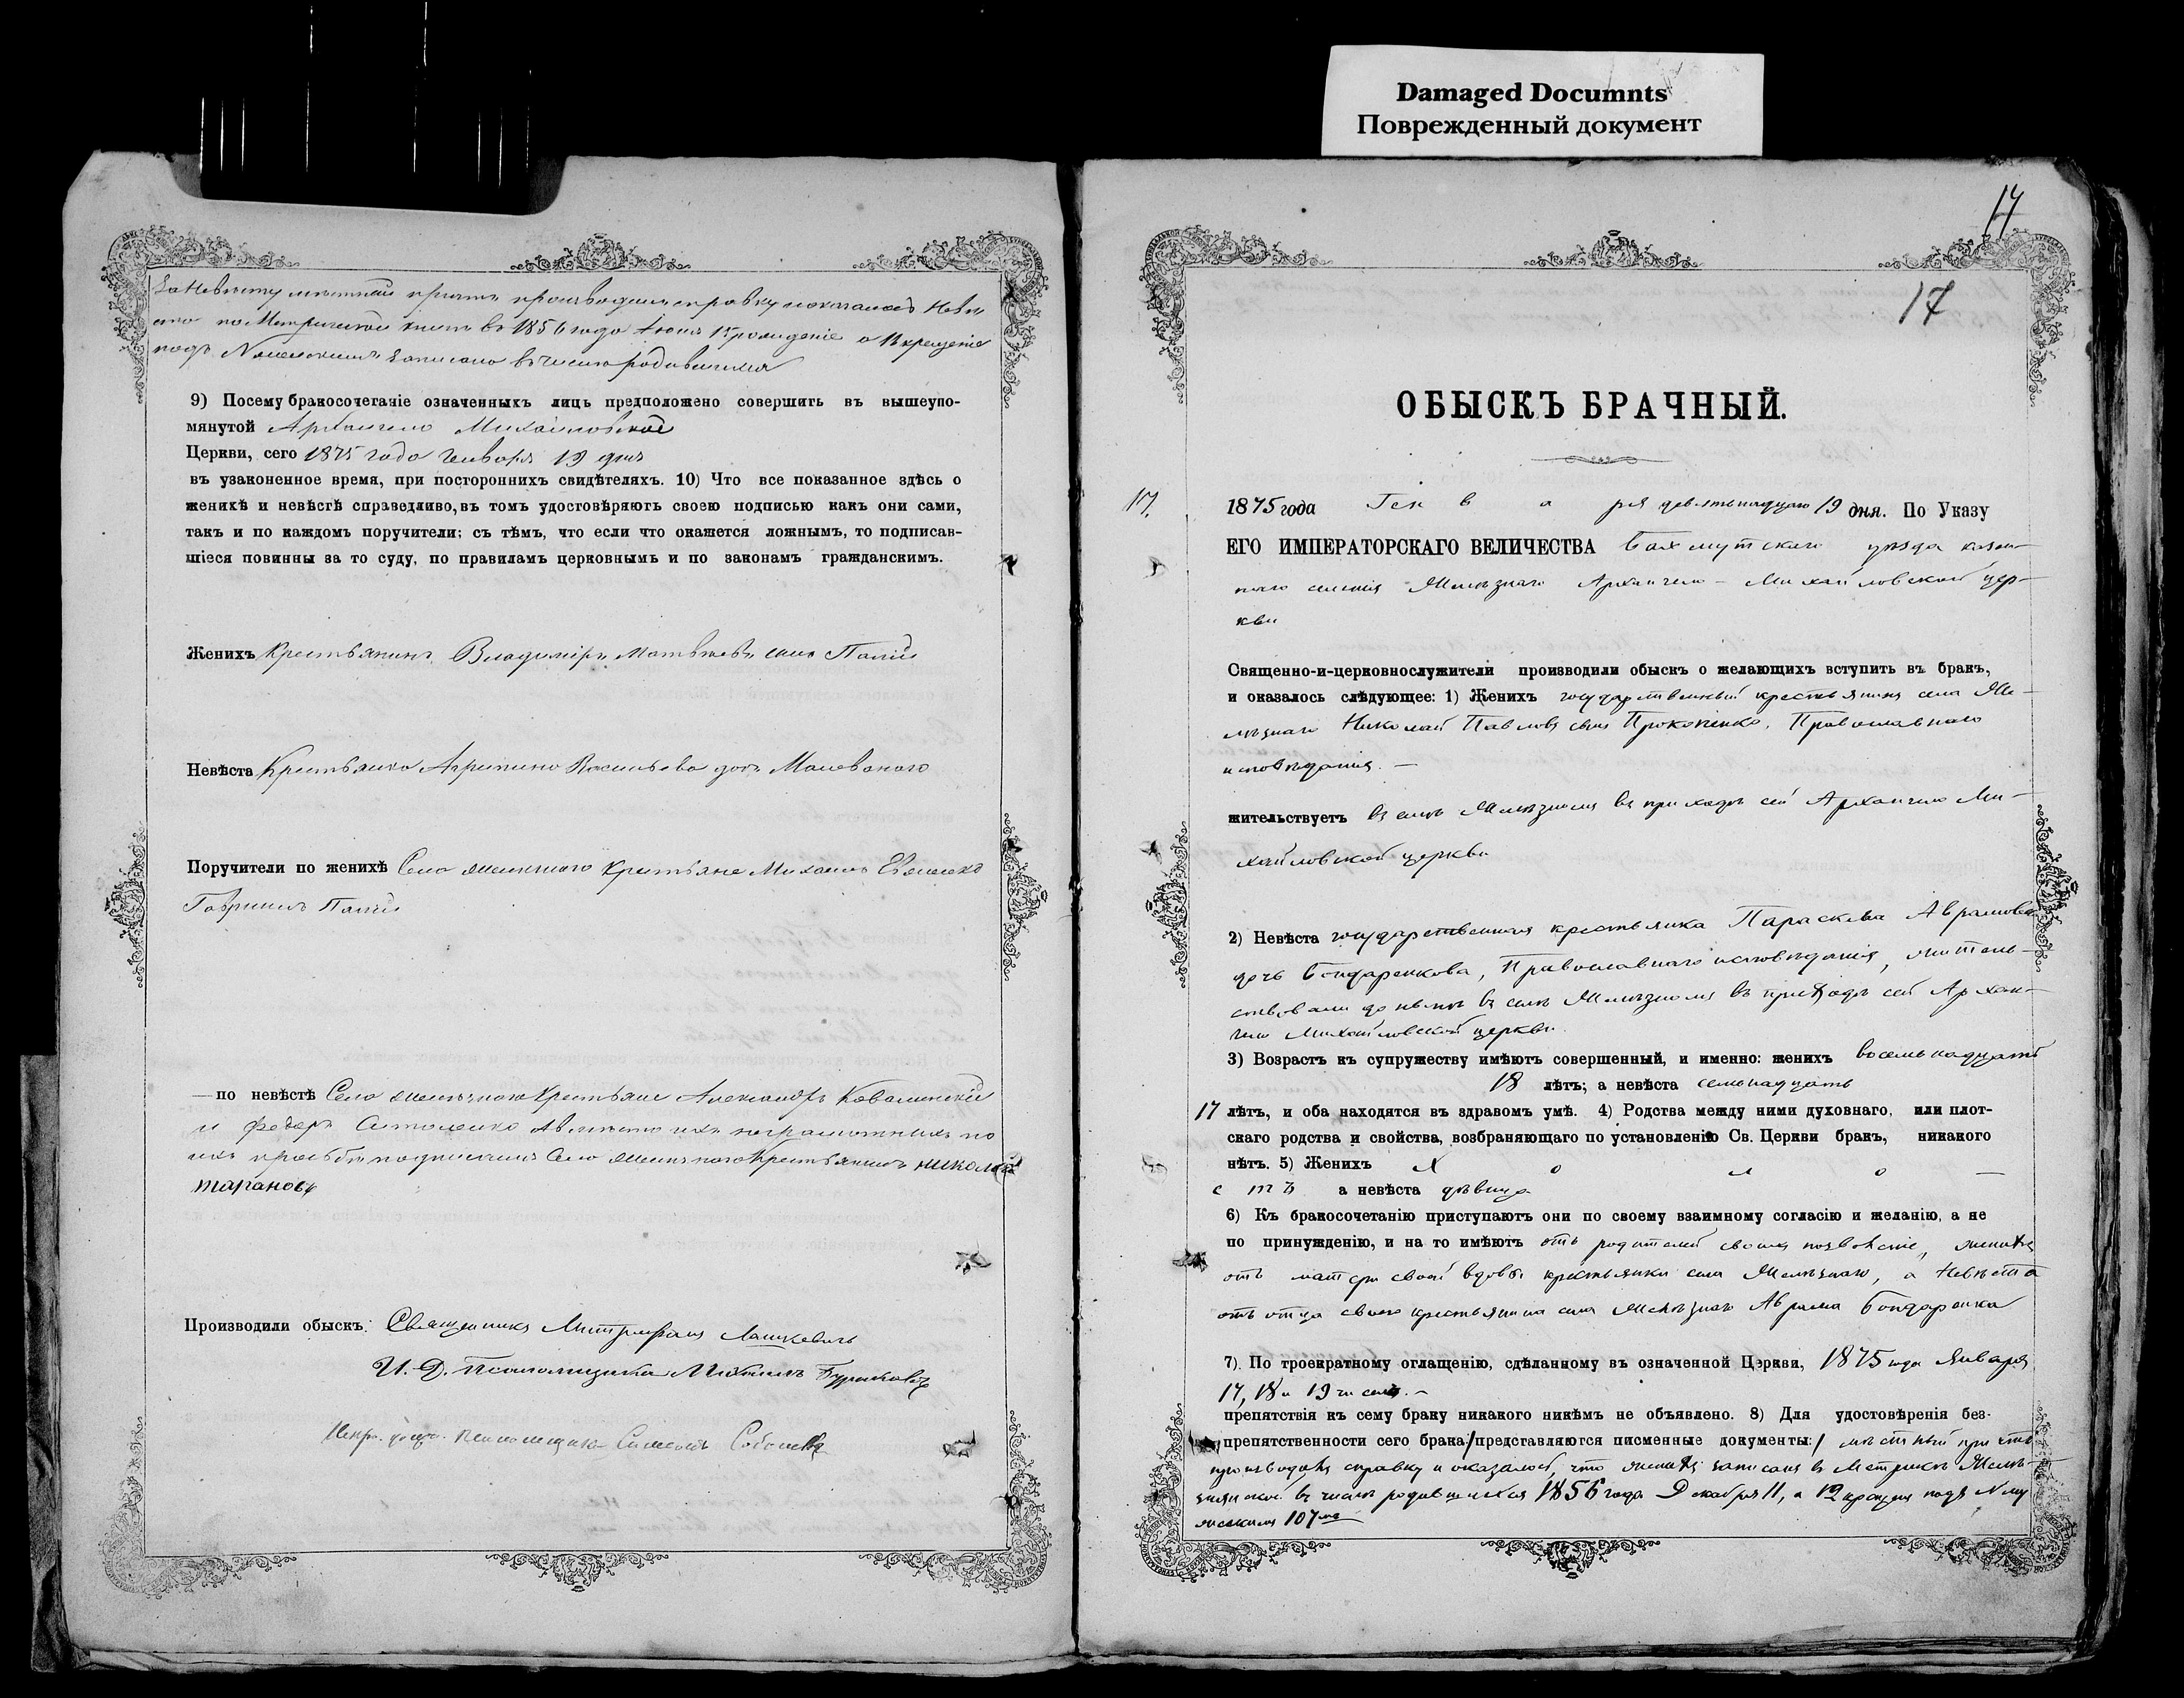 Damaged Documnts
Поврежденный документ
За Невѣсту мѣстный причтъ производилъ справку
по Метрической книгѣ въ 1856 года Іюня рожденіе и Крещеніе
подъ № женскимъ записано въ числѣ родившихся
9) Посему бракосочетаніе означенныхъ лицъ предположено совершить въ вышеупо-
мянутой Архангело Михайловской
Церкви, сего 1875 года Генваря 19 дня
въ узаконенное время, при постороннихъ свидѣтеляхъ. 10) Что все показанное здѣсь о
женихѣ и невѣстѣ справедливо, въ томъ удостовѣряютъ своею подписью какъ они сами,
такъ и по каждомъ поручители; съ тѣмъ, что если что окажется ложнымъ, то подписав-
шіеся повинны за то суду, по правиламъ церковнымъ и по законамъ гражданскимъ.
Женихъ Крестьянинъ Владиміръ Матвѣевъ сынъ Палій
Невѣста Крестьянка Агрипина Васильева дочь
Поручители по женихѣ Села Желѣзного Крестьяне Михаилъ
Гавріилъ Палій
— по невѣстѣ Села Желѣзного Крестьяне Александръ Коваленскій
и Федоръ А вмѣсто ихъ неграмотныхъ по
ихъ прозьбѣ подписался Села Желѣзного Крестьянинъ николай
таранов
Производили обыскъ: Священникъ Митрофанъ Лашкевичъ
И. Д. Псаломщика
Псаломщикъ Симеонъ
17
17
ОБЫСКЪ БРАЧНЫЙ.
17.
1875 года Генваря девятьнадцаго 19 дня. По Указу
ЕГО ИМПЕРАТОРСКАГО ВЕЛИЧЕСТВА Бахмутскаго уѣзда казен-
наго селенія Желѣзнаго Архангело-Михайловской цер-
кви
Священно-и-церковнослужители производили обыскъ о желающихъ вступить въ бракъ,
и оказалось слѣдующее: 1) Женихъ государственный крестьянинъ села Же-
лѣзнаго Николай Павловъ сынъ Прокопенко, Православнаго
исповѣданія. —
жительствуетъ въ селѣ Желѣзномъ въ приходѣ сей Архангело Ми-
хайловской церкви
2) Невѣста государственная крестьянка Параскева Аврамова
дочь Бондаренкова, Православнаго исповѣданія, житель-
ствовали до нынѣ въ селѣ Желѣзномъ въ приходѣ сей Архан-
гело Михайловской церкви.
3) Возрастъ къ супружеству имѣютъ совершенный, и именно: женихъ восемьнадцать
18 лѣтъ; а невѣста семьнадцать
17 лѣтъ, и оба находятся въ здравомъ умѣ. 4) Родства между ними духовнаго, или плот-
скаго родства и свойства, возбраняющаго по установленію Св. Церкви бракъ, никакого
нѣтъ. 5) Женихъ Холо-
стъ а невѣста дѣвица
6) Къ бракосочетанію приступаютъ они по своему взаимному согласію и желанію, а не
по принужденію, и на то имѣютъ отъ родителей своихъ позволеніе, женихъ
отъ матери своей вдовы крестьянки села Желѣзнаго, а Невѣста
отъ отца своего крестьянина села Желѣзнаго Аврама Бондаренка
7) По троекратному оглашенію, сдѣланному въ означенной Церкви, 1875 года Января
17, 18 и 19 числъ. —
препятствія къ сему браку никакого никѣмъ не объявлено. 8) Для удостовѣренія без-
препятственности сего брака /представляются писменные документы:/ мѣстный причтъ
производилъ справку и оказалось, что женихъ записанъ въ Метрикѣ Желѣ-
знянской въ числѣ родившихся 1856 года Декабря 11, а 12 крещенъ подъ № му
жескимъ 107мъ